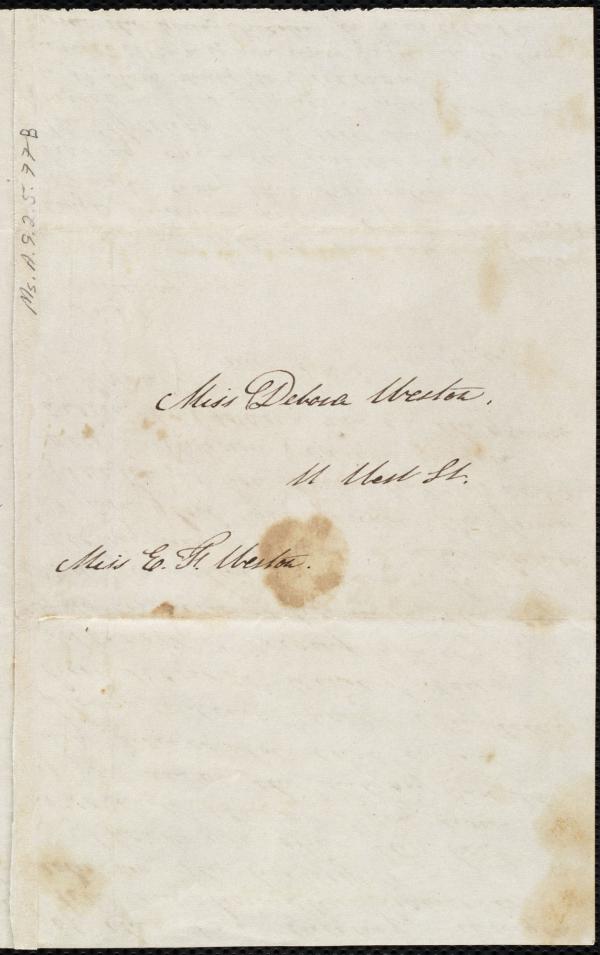 Ms. A. 9. 2. 5. 77B
Miss Debora Weston.
11 West St.
Miss E. F. Weston.